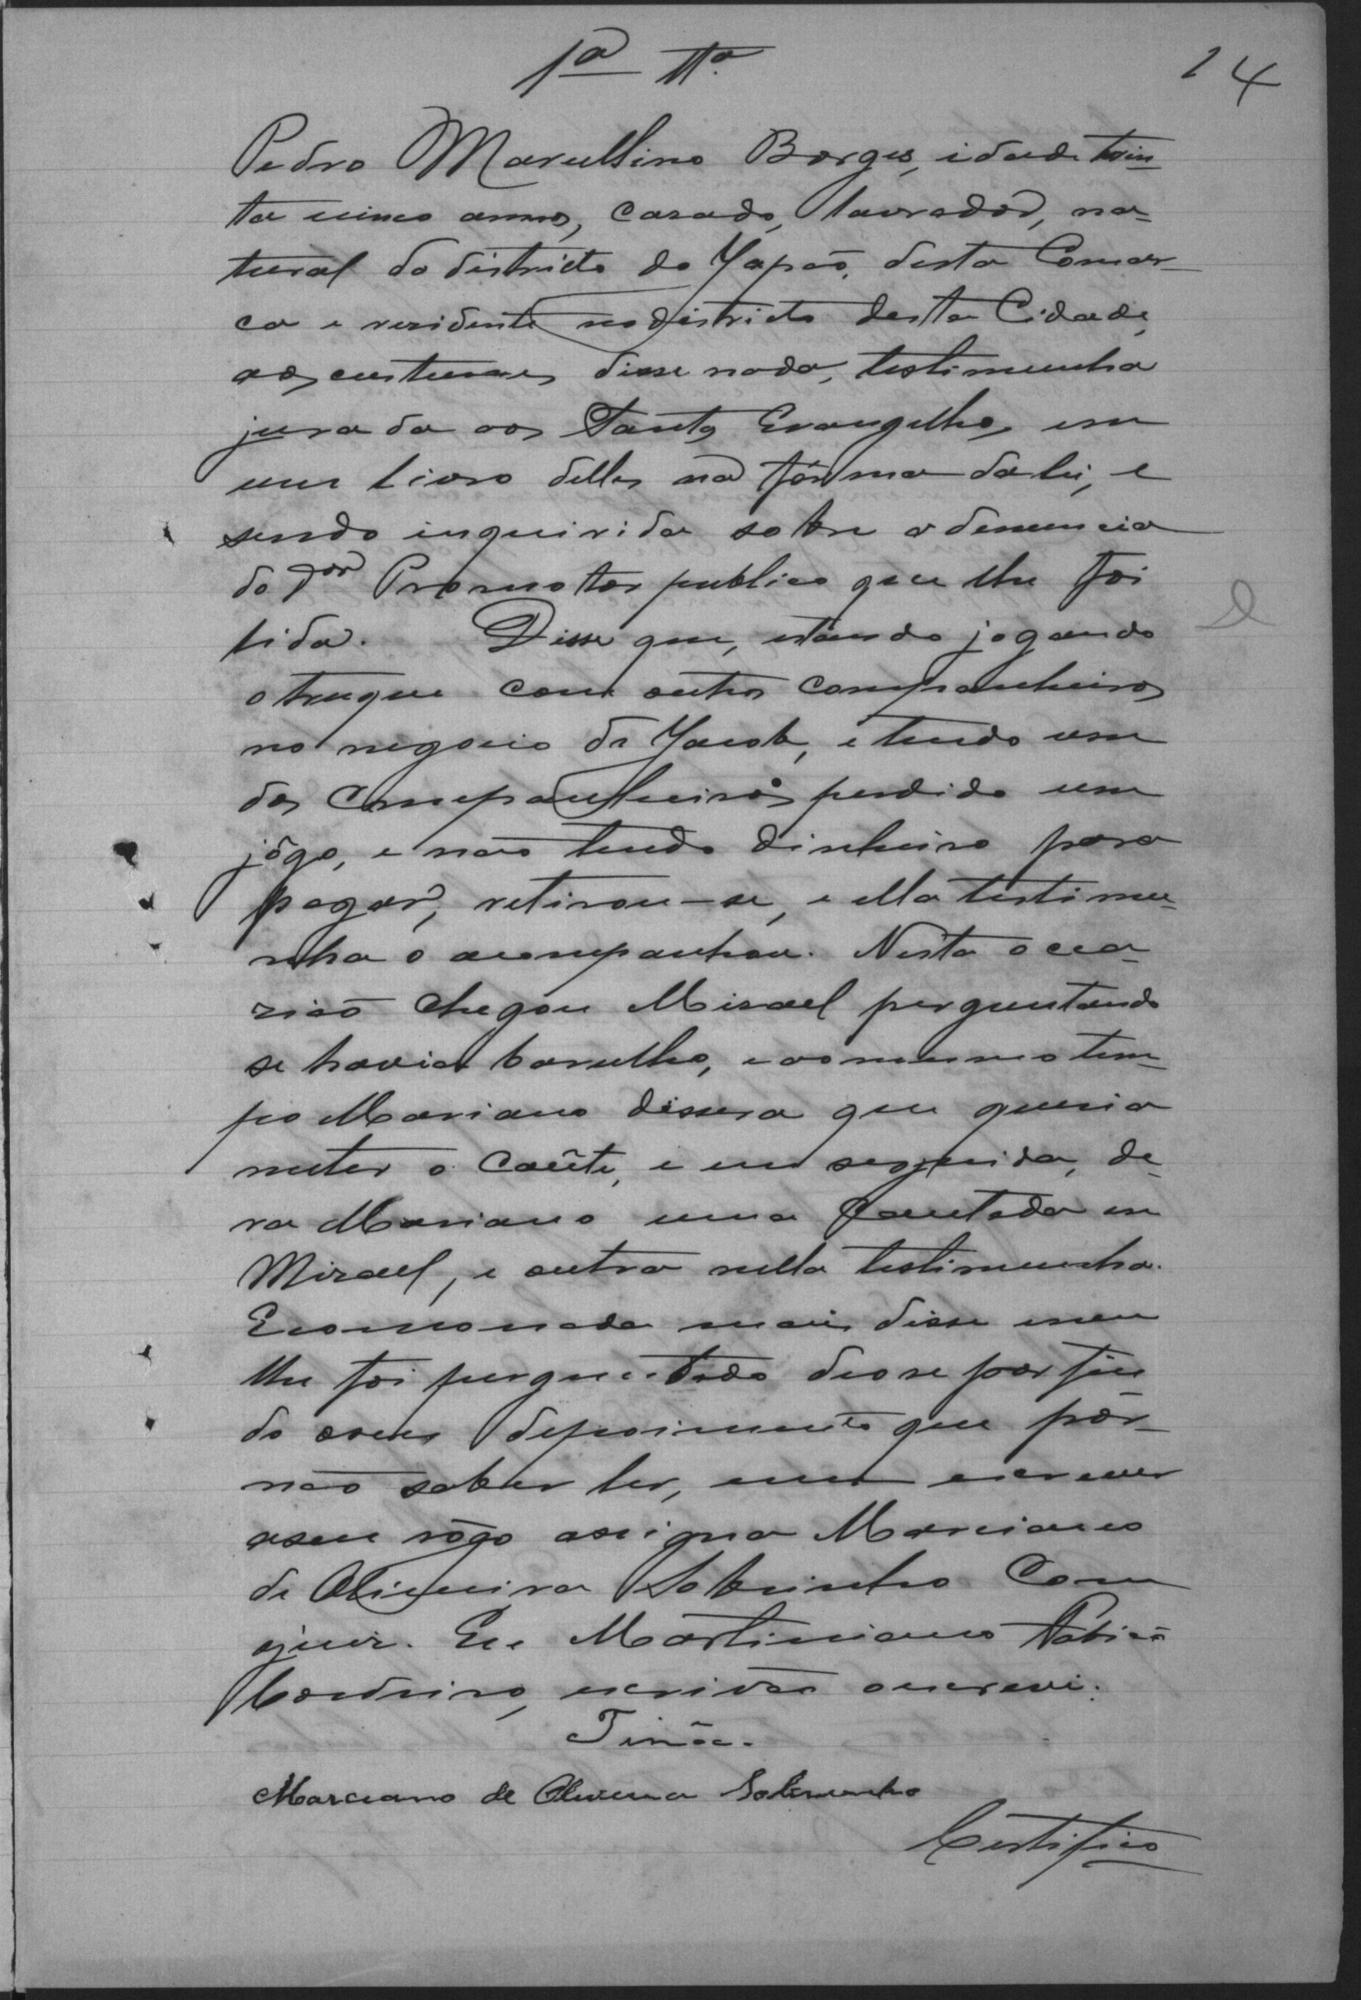 1ª Tta.
14
Pedro Marcellino Borges, idade trin-
ta cinco annos, casado, lavrador, na-
tural do districto do Yapó, desta Comar-
ca e rezidente no districto desta Cidade,
aos custumes disse nada, testimunha
jurada aos Santos Evangelhos em
um livro delles na fórma da lei, e
sendo inquirida sobre a denuncia
do Dor Promotor publico que lhe foi
lida. Disse que, estando jogando
o truque com outros companheiros
no negocio de Jacob, e tendo um
dos companheiros perdido um
jôgo, e não tendo dinheiro para
pagar, retirou-se, e ella testimu-
nha o acompanhou. Nesta occa-
zião chegou Misael perguntando
se havia barulho, e ao mesmo tem-
po Mariano dissera que queria
meter o caête, e em seguida, de-
ra Mariano uma cautada em
Mizael, e outra nella testimunha.
E como nada mais disse nem
lhe foi perguntado deo se por fin
do o seu depoimento que por
não saber ler, nem escrever
a seu rôgo assigna Marciano
de Oliveira Sobrinho com
o juiz. Eu Martiniano
Cordeiro, escrivão o escrevi.
Marciano de Oliveira Sobrinho
Certifico